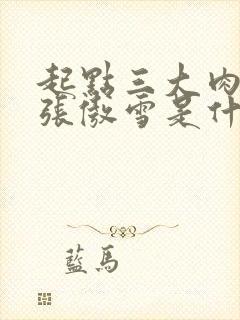 起點三大肉
張傲雪是什
藍馬